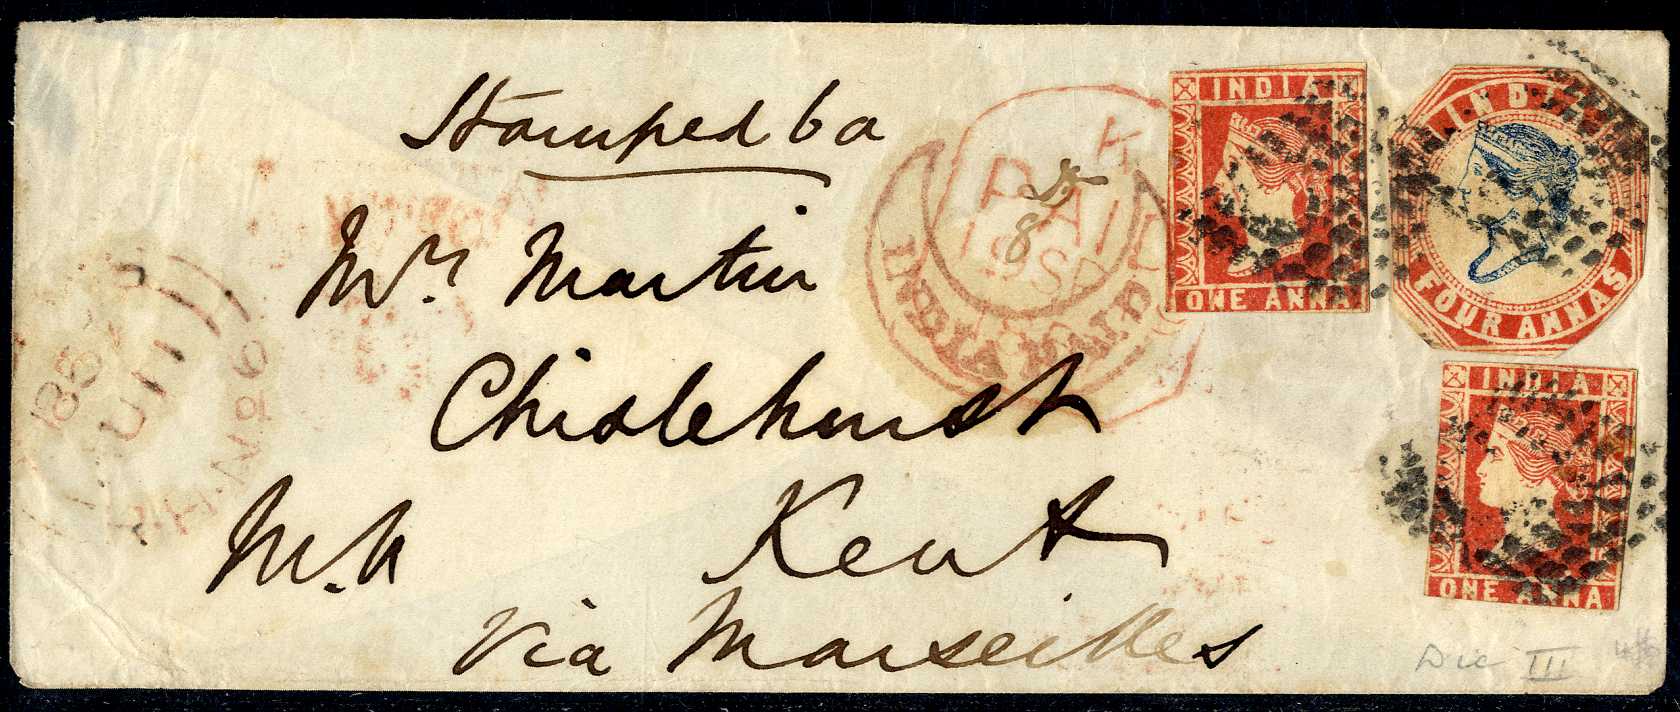 Stamped 6a
Mrs. Martin
Chislehurst
Kent
via Marseilles
INDIA
ONE ANNA
INDIA
FOUR ANNAS
INDIA
ONE ANNA
PAID
INDIA PAID
Die III